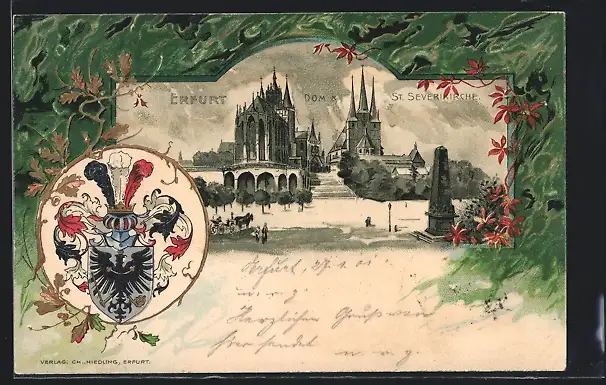 ERFURT DOM & ST. SEVERIKIRCHE.
Erfurt, 27.1.01.
u. n. g.
Herzlichen Gruß von
hier sendet
u. n. g.
VERLAG: CH. NIEDLING, ERFURT.